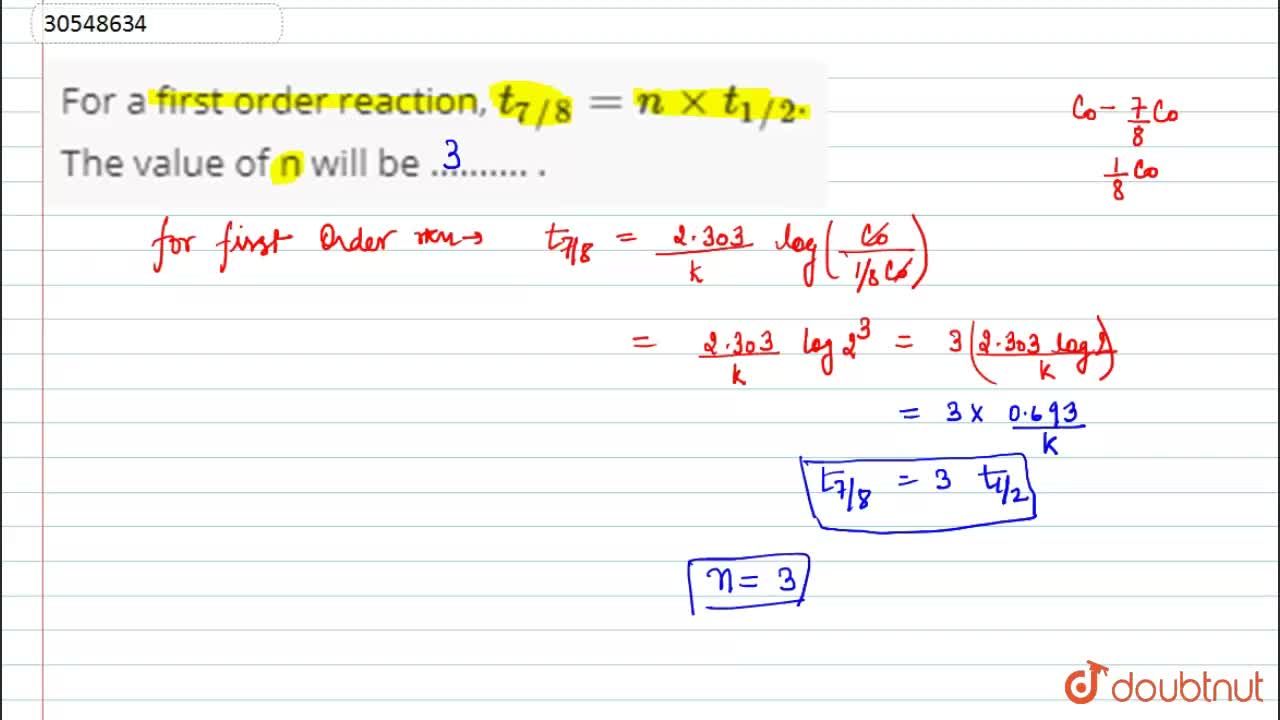 30548634
For a first order reaction, t_{7/8} = n × t_{1/2}.
The value of n will be ...3....... .
C₀ - 7/8 C₀
1/8 C₀
for first Order rxn → t_{7/8} = 2.303/k log(C₀/(1/8 C₀))
= 2.303/k log 2³ = 3(2.303 log 2/k)
= 3 × 0.693/k
t_{7/8} = 3 t_{1/2}
n = 3
doubtnut